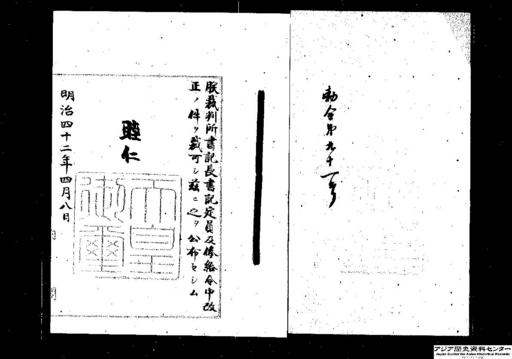 勅令第九十一号
朕裁判所書記長書記定員及俸給令中改
正ノ件ヲ裁可シ茲ニ之ヲ公布セシム
睦仁
天皇御璽
明治四十二年四月八日
アジア歴史資料センター
Japan Center for Asian Historical Records